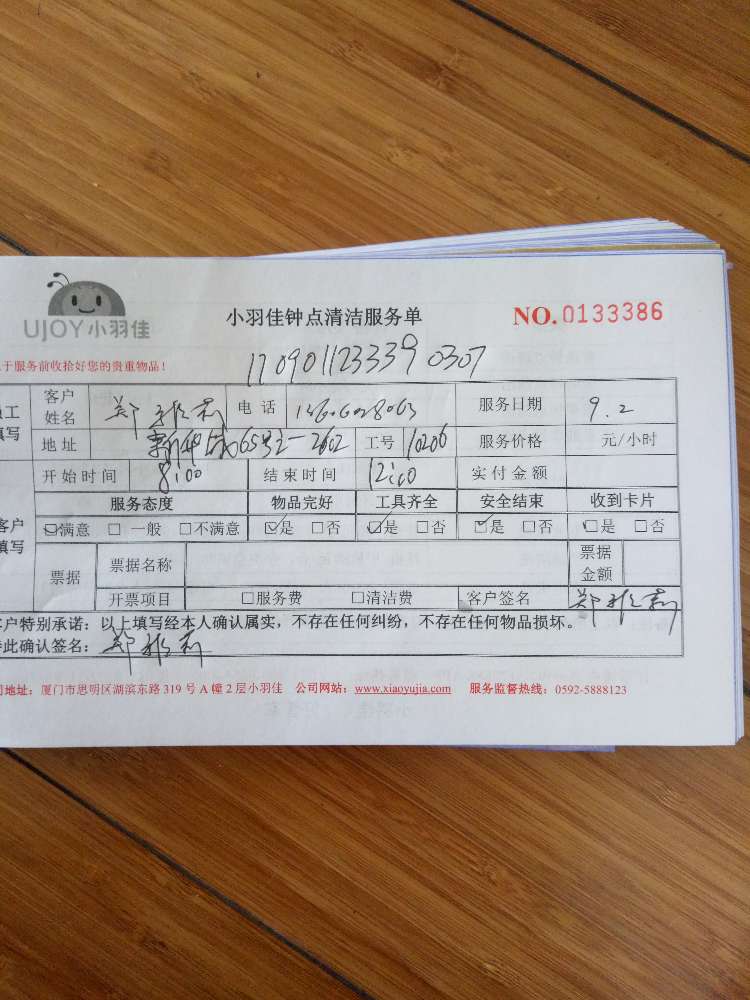 UJOY小羽佳
小羽佳钟点清洁服务单
NO. 0133386
于服务前收拾好您的贵重物品!
1709011233390307
客户姓名 郑 电话 服务日期 9.2
地址 工号 10206 服务价格 元/小时
开始时间 8:00 结束时间 12:00 实付金额
服务态度 物品完好 工具齐全 安全结束 收到卡片
客户填写 ☑满意 □一般 □不满意 ☑是 □否 ☑是 □否 ☑是 □否 ☑是 □否
票据 票据名称 票据金额
开票项目 □服务费 □清洁费 客户签名 郑
客户特别承诺:以上填写经本人确认属实,不存在任何纠纷,不存在任何物品损坏。
此确认签名: 郑
地址:厦门市思明区湖滨东路 319 号 A 幢 2 层小羽佳 公司网站:www.xiaoyujia.com 服务监督热线:0592-5888123